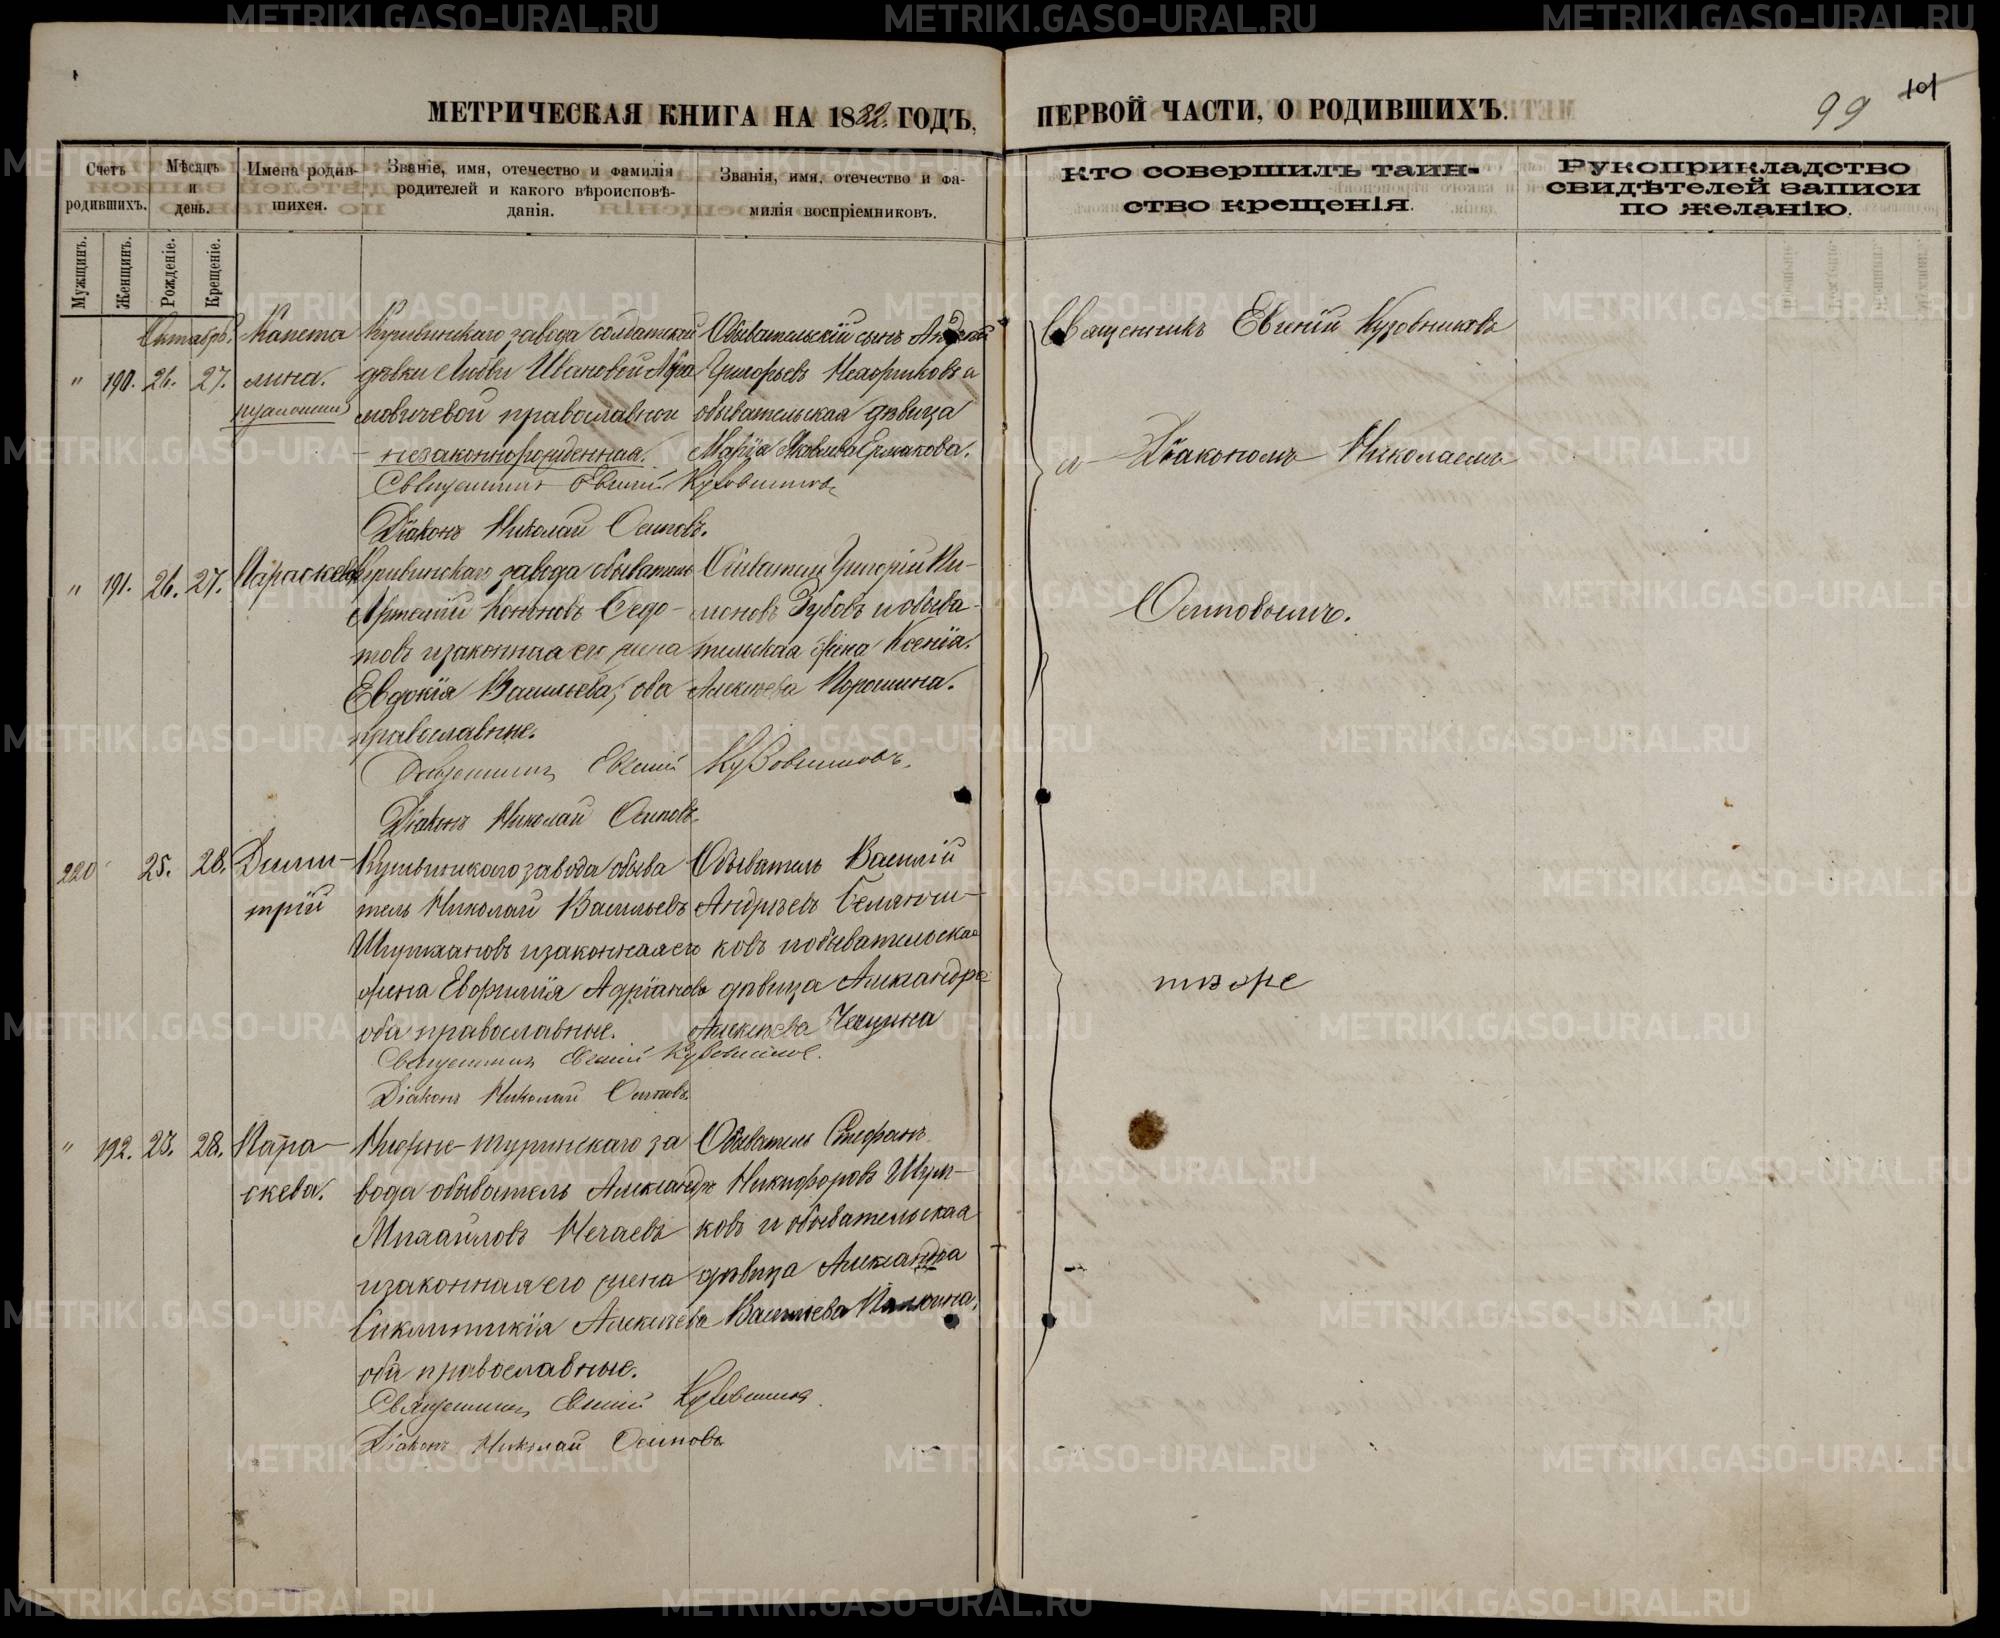 МЕТРИЧЕСКАЯ КНИГА НА 1882 ГОДЪ,
ПЕРВОЙ ЧАСТИ, О РОДИВШИХЪ.
99
101
Счетъ родившихъ.
Мѣсяцъ и день.
Имена родившихся.
Званіе, имя, отечество и фамилія родителей и какого вѣроисповѣданія.
Званія, имя, отечество и фамилія воспріемниковъ.
Кто совершилъ таинство крещенія.
Рукоприкладство свидѣтелей записи по желанію.
Мужщинъ.
Женщинъ.
Рожденіе.
Крещеніе.
Октябрь.
" 190. 26. 27.
Капетолина.
Кушвинскаго завода солдатской
дѣвки Любви Ивановой Абра
мовичевой православной
незаконнорожденная.
Обывательскій сынъ Андрей
Григорьевъ и
обывательская дѣвица
Марія Яковлева Ермакова.
Священникъ Евгеній Кузовниковъ
Діаконъ Николай Осиповъ.
" 191. 26. 27.
Параскева
Кушвинскаго завода обыватель
Артемій Кононовъ Федо-
товъ и законная его жена
Евдокія Васильева, оба
православные.
Обыватель Григорій
Зубовъ и обыва-
тельская жена Ксенія
Алексѣева Порошина.
Священникъ Евгеній Кузовниковъ.
Діаконъ Николай Осиповъ.
220 25. 28.
Дими-
трій
Кушвинскаго завода обыва
тель Николай Васильевъ
и законная его
жена Евфимія Адріанова
оба православные.
Обыватель Василій
Андреевъ Селянки-
ковъ и обывательская
дѣвица Александра
Алексѣева Чащина
Священникъ Евгеній Кузовниковъ.
Діаконъ Николай Осиповъ
" 192. 23. 28.
Пара-
скева.
Нижне-туринскаго за
вода обыватель Александръ
Михайловъ Нечаевъ
и законная его жена
Синклитикія Алексѣева
оба православные.
Обыватель Стефанъ
Никифоровъ Шум-
ковъ и обывательская
дѣвица Александра
Васильева
Священникъ Евгеній Кузовниковъ
Діаконъ Николай Осиповъ
Священникъ Евгеній Кузовниковъ
съ Діакономъ Николаемъ
Осиповымъ.
тѣ же
METRIKI.GASO-URAL.RU